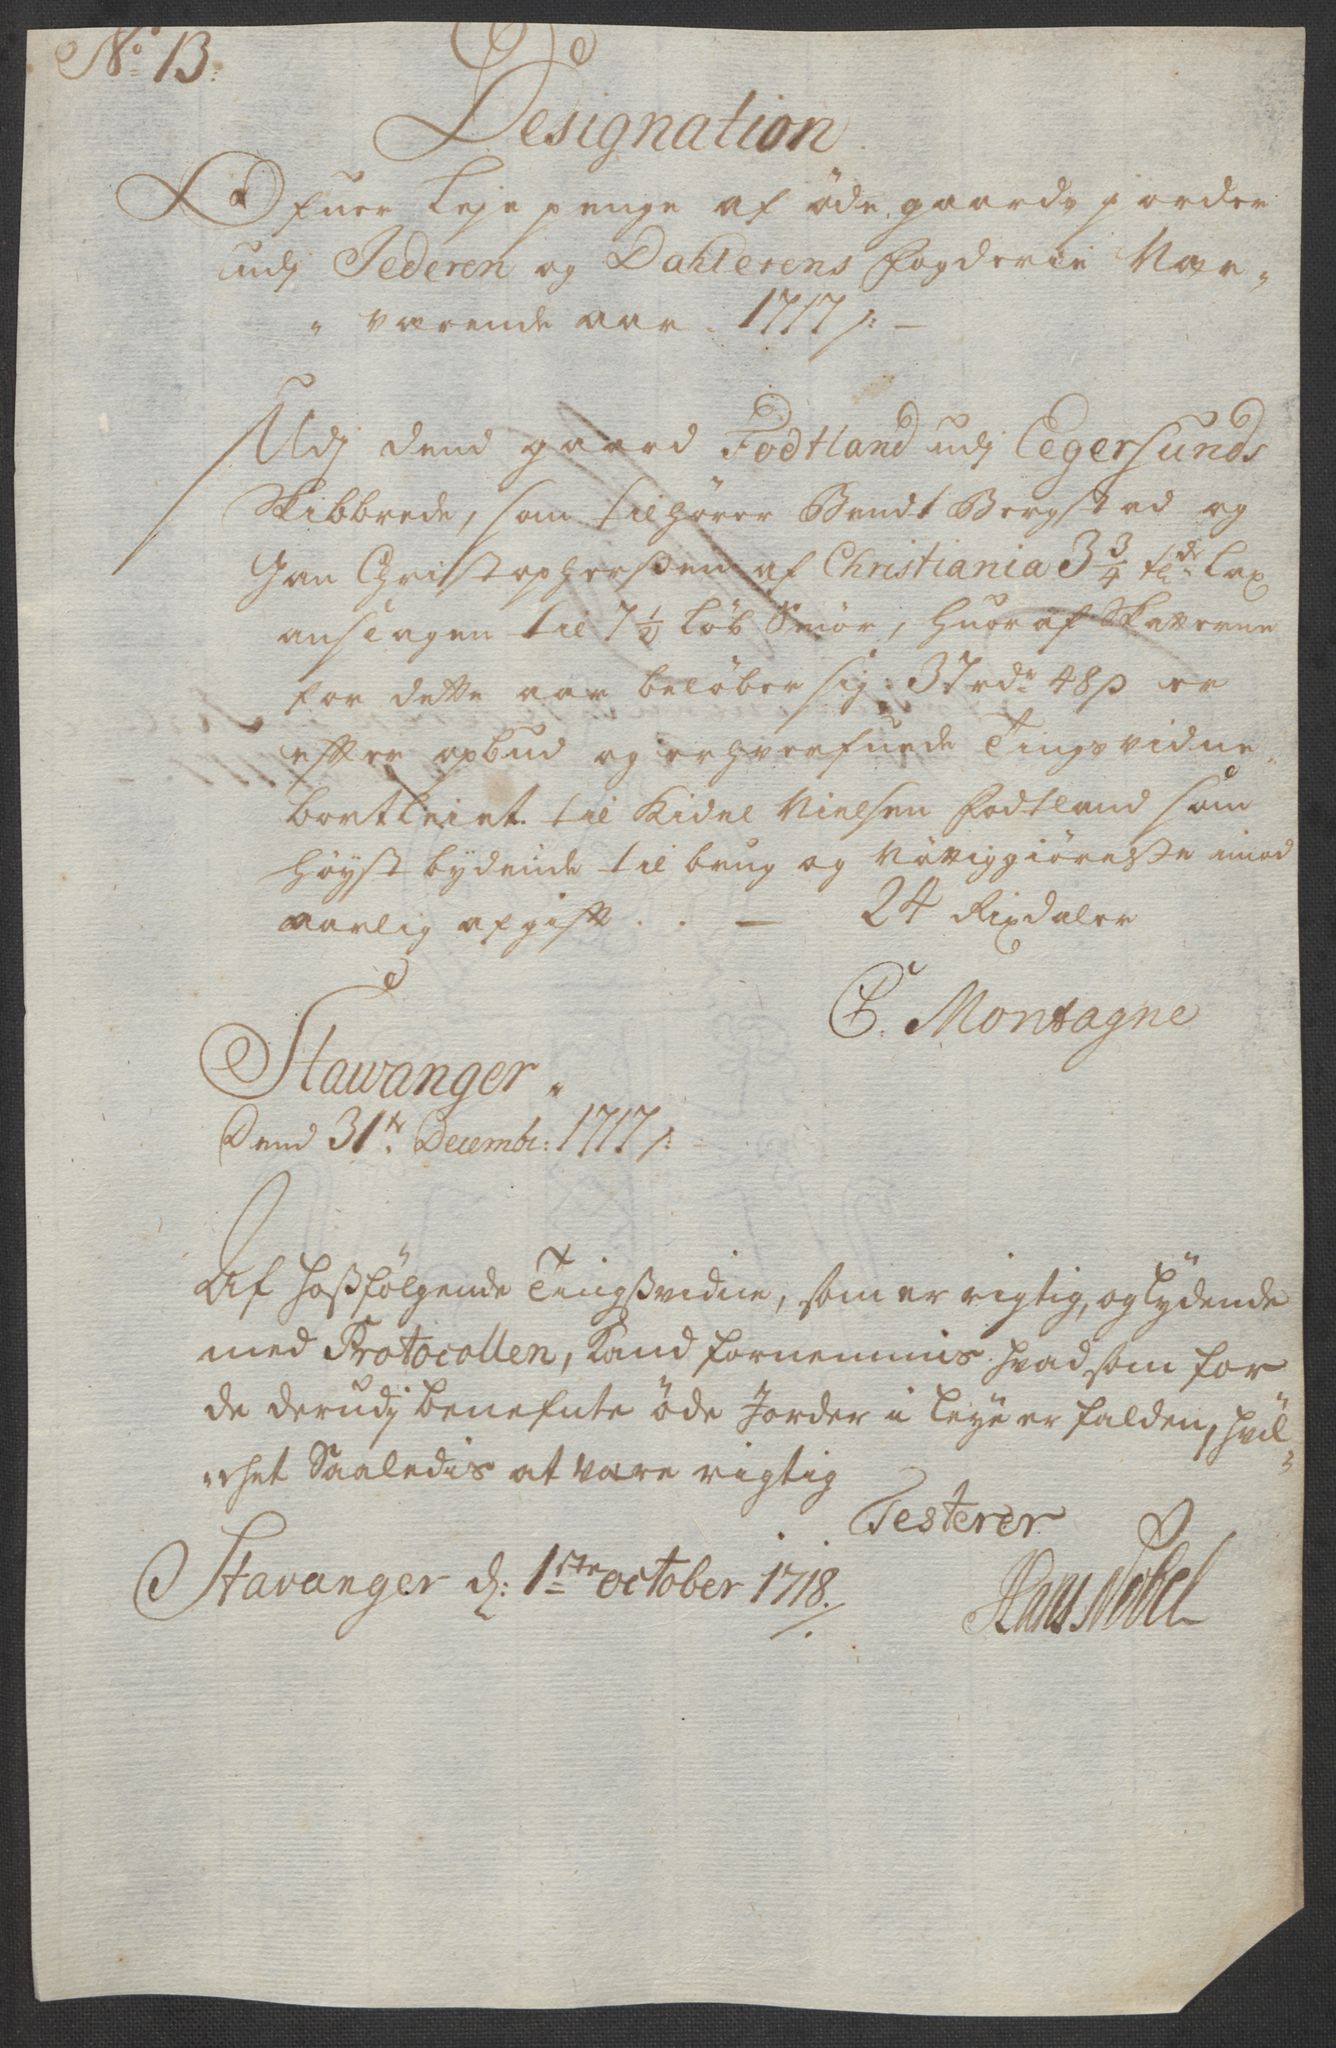 No 13.
Designation
Ofuer Leje penge af öde gaards jorder
udj Jederen og Dahlerens fogderie Nær„
„ værende aar 1717 /: —
Udj dend gaard Fodtland udj Eegersunds
Skibbrede, som tilhører Bendt Bergsted og
Jan Christophersen af Christiania 3 3/4 tdr Lax
anslagen til 7 1/2 Løb Smör, huoraf Skatterne
for dette aar beløber sig 37 rdr 48 s er
efter opbud og erhverfuede Tingsvidne
bortleiet til Kidel Nielsen Fodtland som
høyst bydende til brug og Nøttiggiørelse imod
aarlig afgift . . — 24 Rixdaler
C. Montagne
Stawanger „
Dend 31te Decembr: 1717 /:
Af hoßfølgende Tingßvidne, som er rigtig, og lydende
med Protocollen, Kand fornemmis hvad som for
de derudj benefnte öde Jorder i leye er falden, hvil„
„chet Saaledis at være rigtig
Testerer
Stavanger d: 1ste october 1718 /.
Hans Nobel